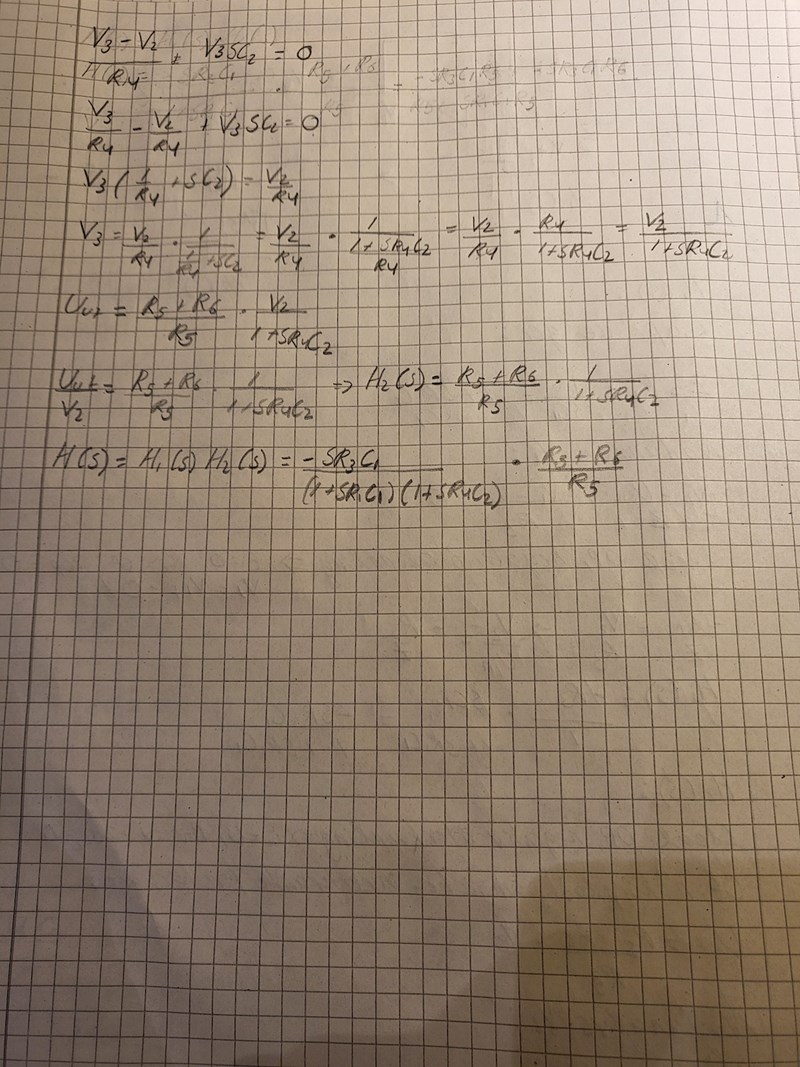 (V3 - V2)/R4 + V3SC2 = 0
V3/R4 - V2/R4 + V3SC2 = 0
V3(1/R4 + SC2) = V2/R4
V3 = V2/R4 · 1/(1/R4 + SC2) = V2/R4 · 1/((1+SR4C2)/R4) = V2/R4 · R4/(1+SR4C2) = V2/(1+SR4C2)
Uut = (R5+R6)/R5 · V2/(1+SR4C2)
Uut/V2 = (R5+R6)/R5 · 1/(1+SR4C2) => H2(s) = (R5+R6)/R5 · 1/(1+SR4C2)
H(s) = H1(s) H2(s) = -SR3C1/((1+SR1C1)(1+SR4C2)) · (R5+R6)/R5